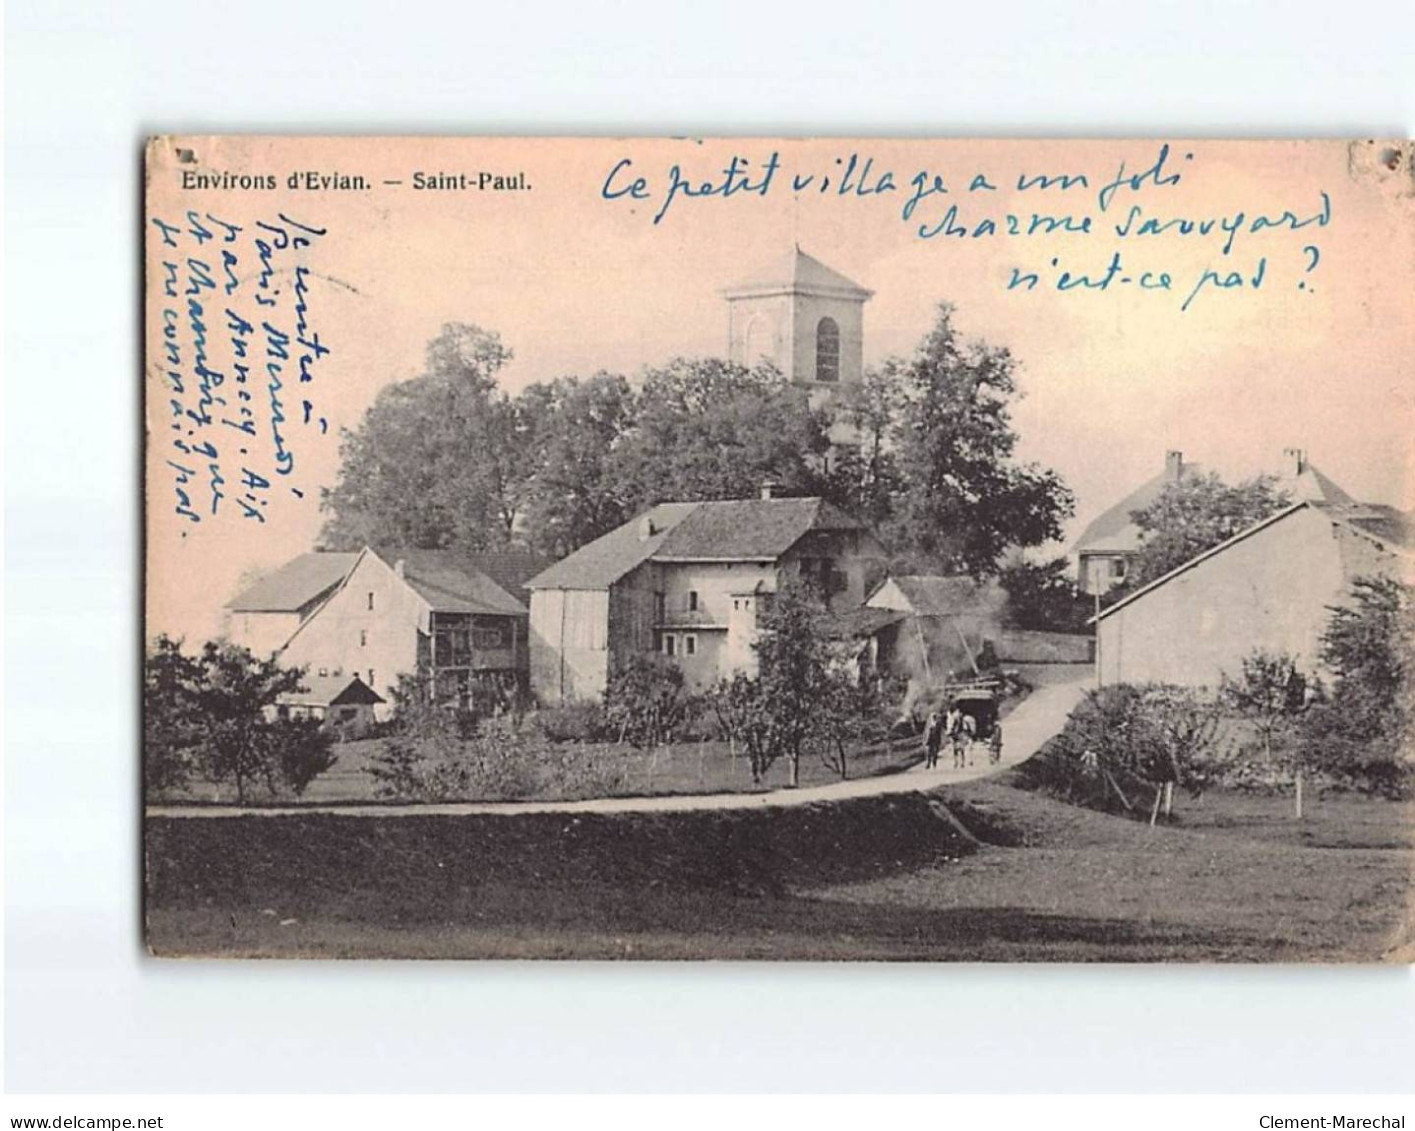 Environs d'Evian. — Saint-Paul.
Ce petit village a un joli
charme savoyard
n'est-ce pas ?
Je rentre à
Paris Mercredi,
par Annecy. Aix
et Chambéry que
je ne connais pas.
www.delcampe.net
Clement-Marechal